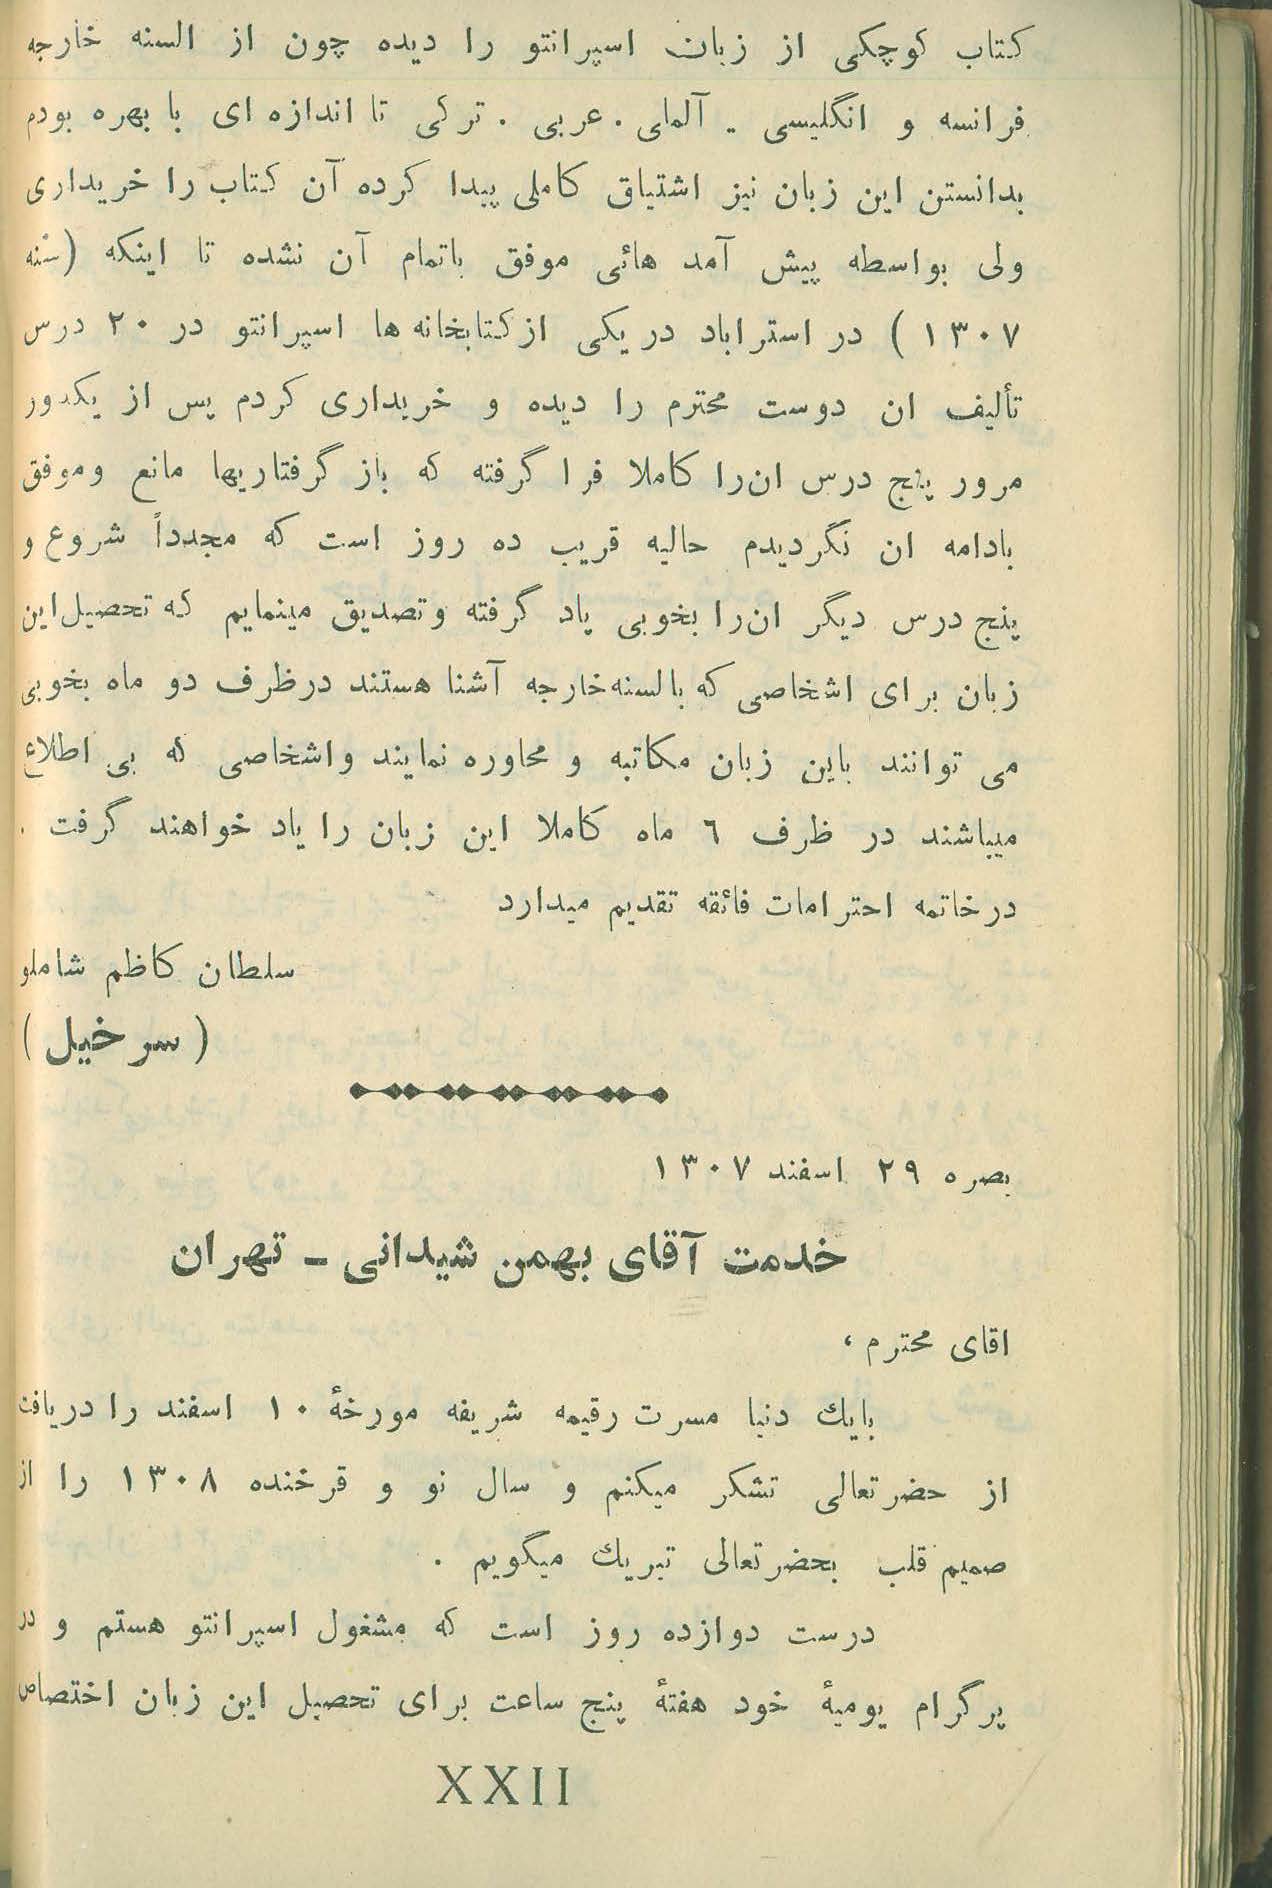 کتاب کوچکی از زبان اسپرانتو را دیده چون از السنه خارجه
فرانسه و انگلیسی - آلمای . عربی . ترکی تا اندازه ای با بهره بودم
بدانستن این زبان نیز اشتیاق کاملی پیدا کرده آن کتاب را خریداری
ولی بواسطه پیش آمد هائی موفق باتمام آن نشده تا اینکه (سنه
۱۳۰۷ ) در استراباد در یکی از کتابخانه ها اسپرانتو در ۲۰ درس
تألیف ان دوست محترم را دیده و خریداری کردم پس از یکدور
مرور پنج درس ان را کاملا فرا گرفته که باز گرفتاریها مانع و موفق
بادامه ان نگردیدم حالیه قریب ده روز است که مجدداً شروع و
پنج درس دیگر ان را بخوبی یاد گرفته و تصدیق مینمایم که تحصیل این
زبان برای اشخاصی که بالسنه خارجه آشنا هستند در ظرف دو ماه بخوبی
می توانند باین زبان مکاتبه و محاوره نمایند و اشخاصی که بی اطلاع
میباشند در ظرف ٦ ماه کاملا این زبان را یاد خواهند گرفت .
در خاتمه احترامات فائقه تقدیم میدارد
سلطان کاظم شاملو
( سر خیل )
بصره ۲۹ اسفند ۱۳۰۷
خدمت آقای بهمن شیدانی - تهران
اقای محترم ،
بایك دنیا مسرت رقیمه شریفه مورخهٔ ۱۰ اسفند را دریافت
از حضرتعالی تشکر میکنم و سال نو و قرخنده ۱۳۰۸ را از
صمیم قلب بحضرتعالی تبریك میگویم .
درست دوازده روز است که مشغول اسپرانتو هستم و در
پرگرام یومیهٔ خود هفتهٔ پنج ساعت برای تحصیل این زبان اختصاص
XXII